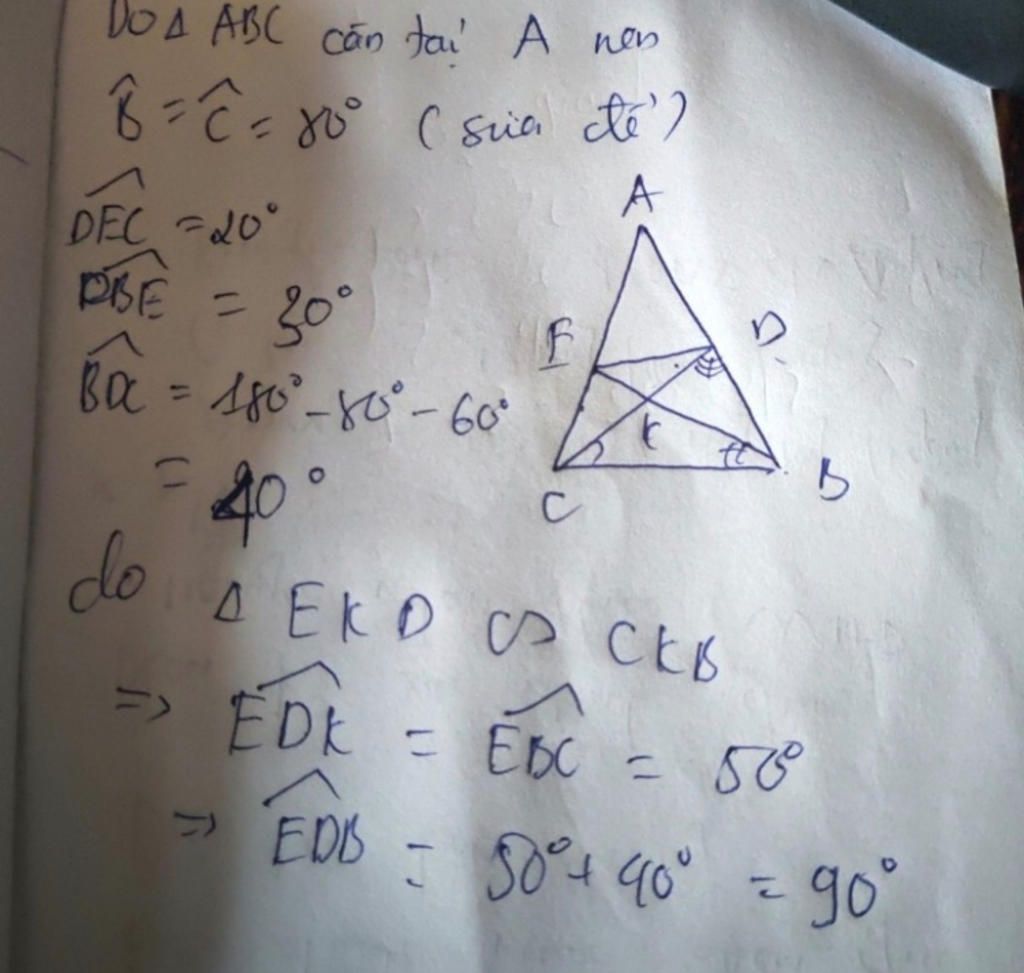 Do Δ ABC cân tại A nên
B̂ = Ĉ = 80° (sửa đề)
\widehat{DEC} = 20°
\widehat{DBE} = 30°
\widehat{BDC} = 180° - 80° - 60°
= 40°
do Δ EKD ∽ CKB
=> \widehat{EDK} = \widehat{EBC} = 50°
=> \widehat{EDB} = 50° + 40° = 90°
A
E
D
K
C
B